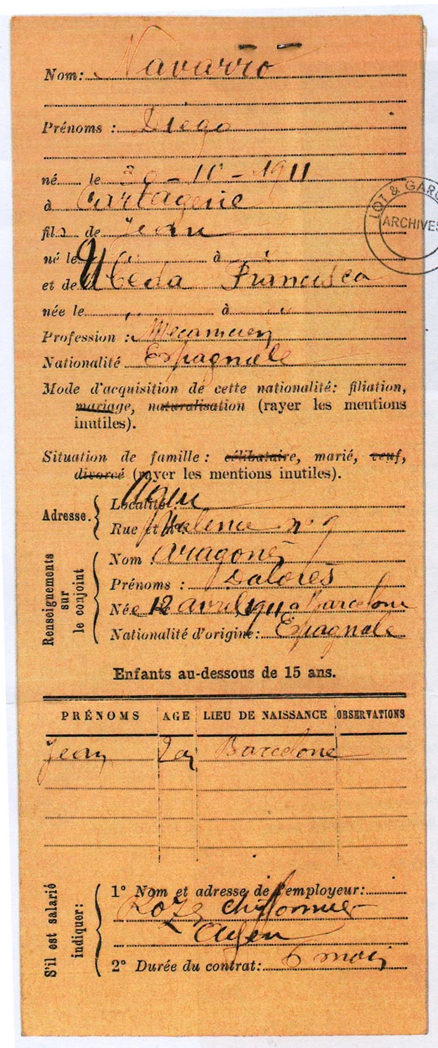 Nom: Navarro
Prénoms : Diego
né le 30-10-1911
à Cartagène
fils de Jean
né le à
et de Ubeda Francisca
née le à
Profession : Mécanicien
Nationalité Espagnole
Mode d'acquisition de cette nationalité: filiation,
mariage, naturalisation (rayer les mentions
inutiles).
Situation de famille : célibataire, marié, veuf,
divorcé (rayer les mentions inutiles).
Adresse.
Localité: Agen
Rue et n°
Renseignements
sur
le conjoint
Nom : Aragonés
Prénoms : Dalorès
Née 12 avril 1911 a Barcelone
Nationalité d'origine: Espagnole
Enfants au-dessous de 15 ans.
PRÉNOMS AGE LIEU DE NAISSANCE OBSERVATIONS
Jean Barcelone
S'il est salarié
indiquer:
1° Nom et adresse de l'employeur:
chiffonnier
Agen
2° Durée du contrat: 6 mois
LOT & GARO
ARCHIVES